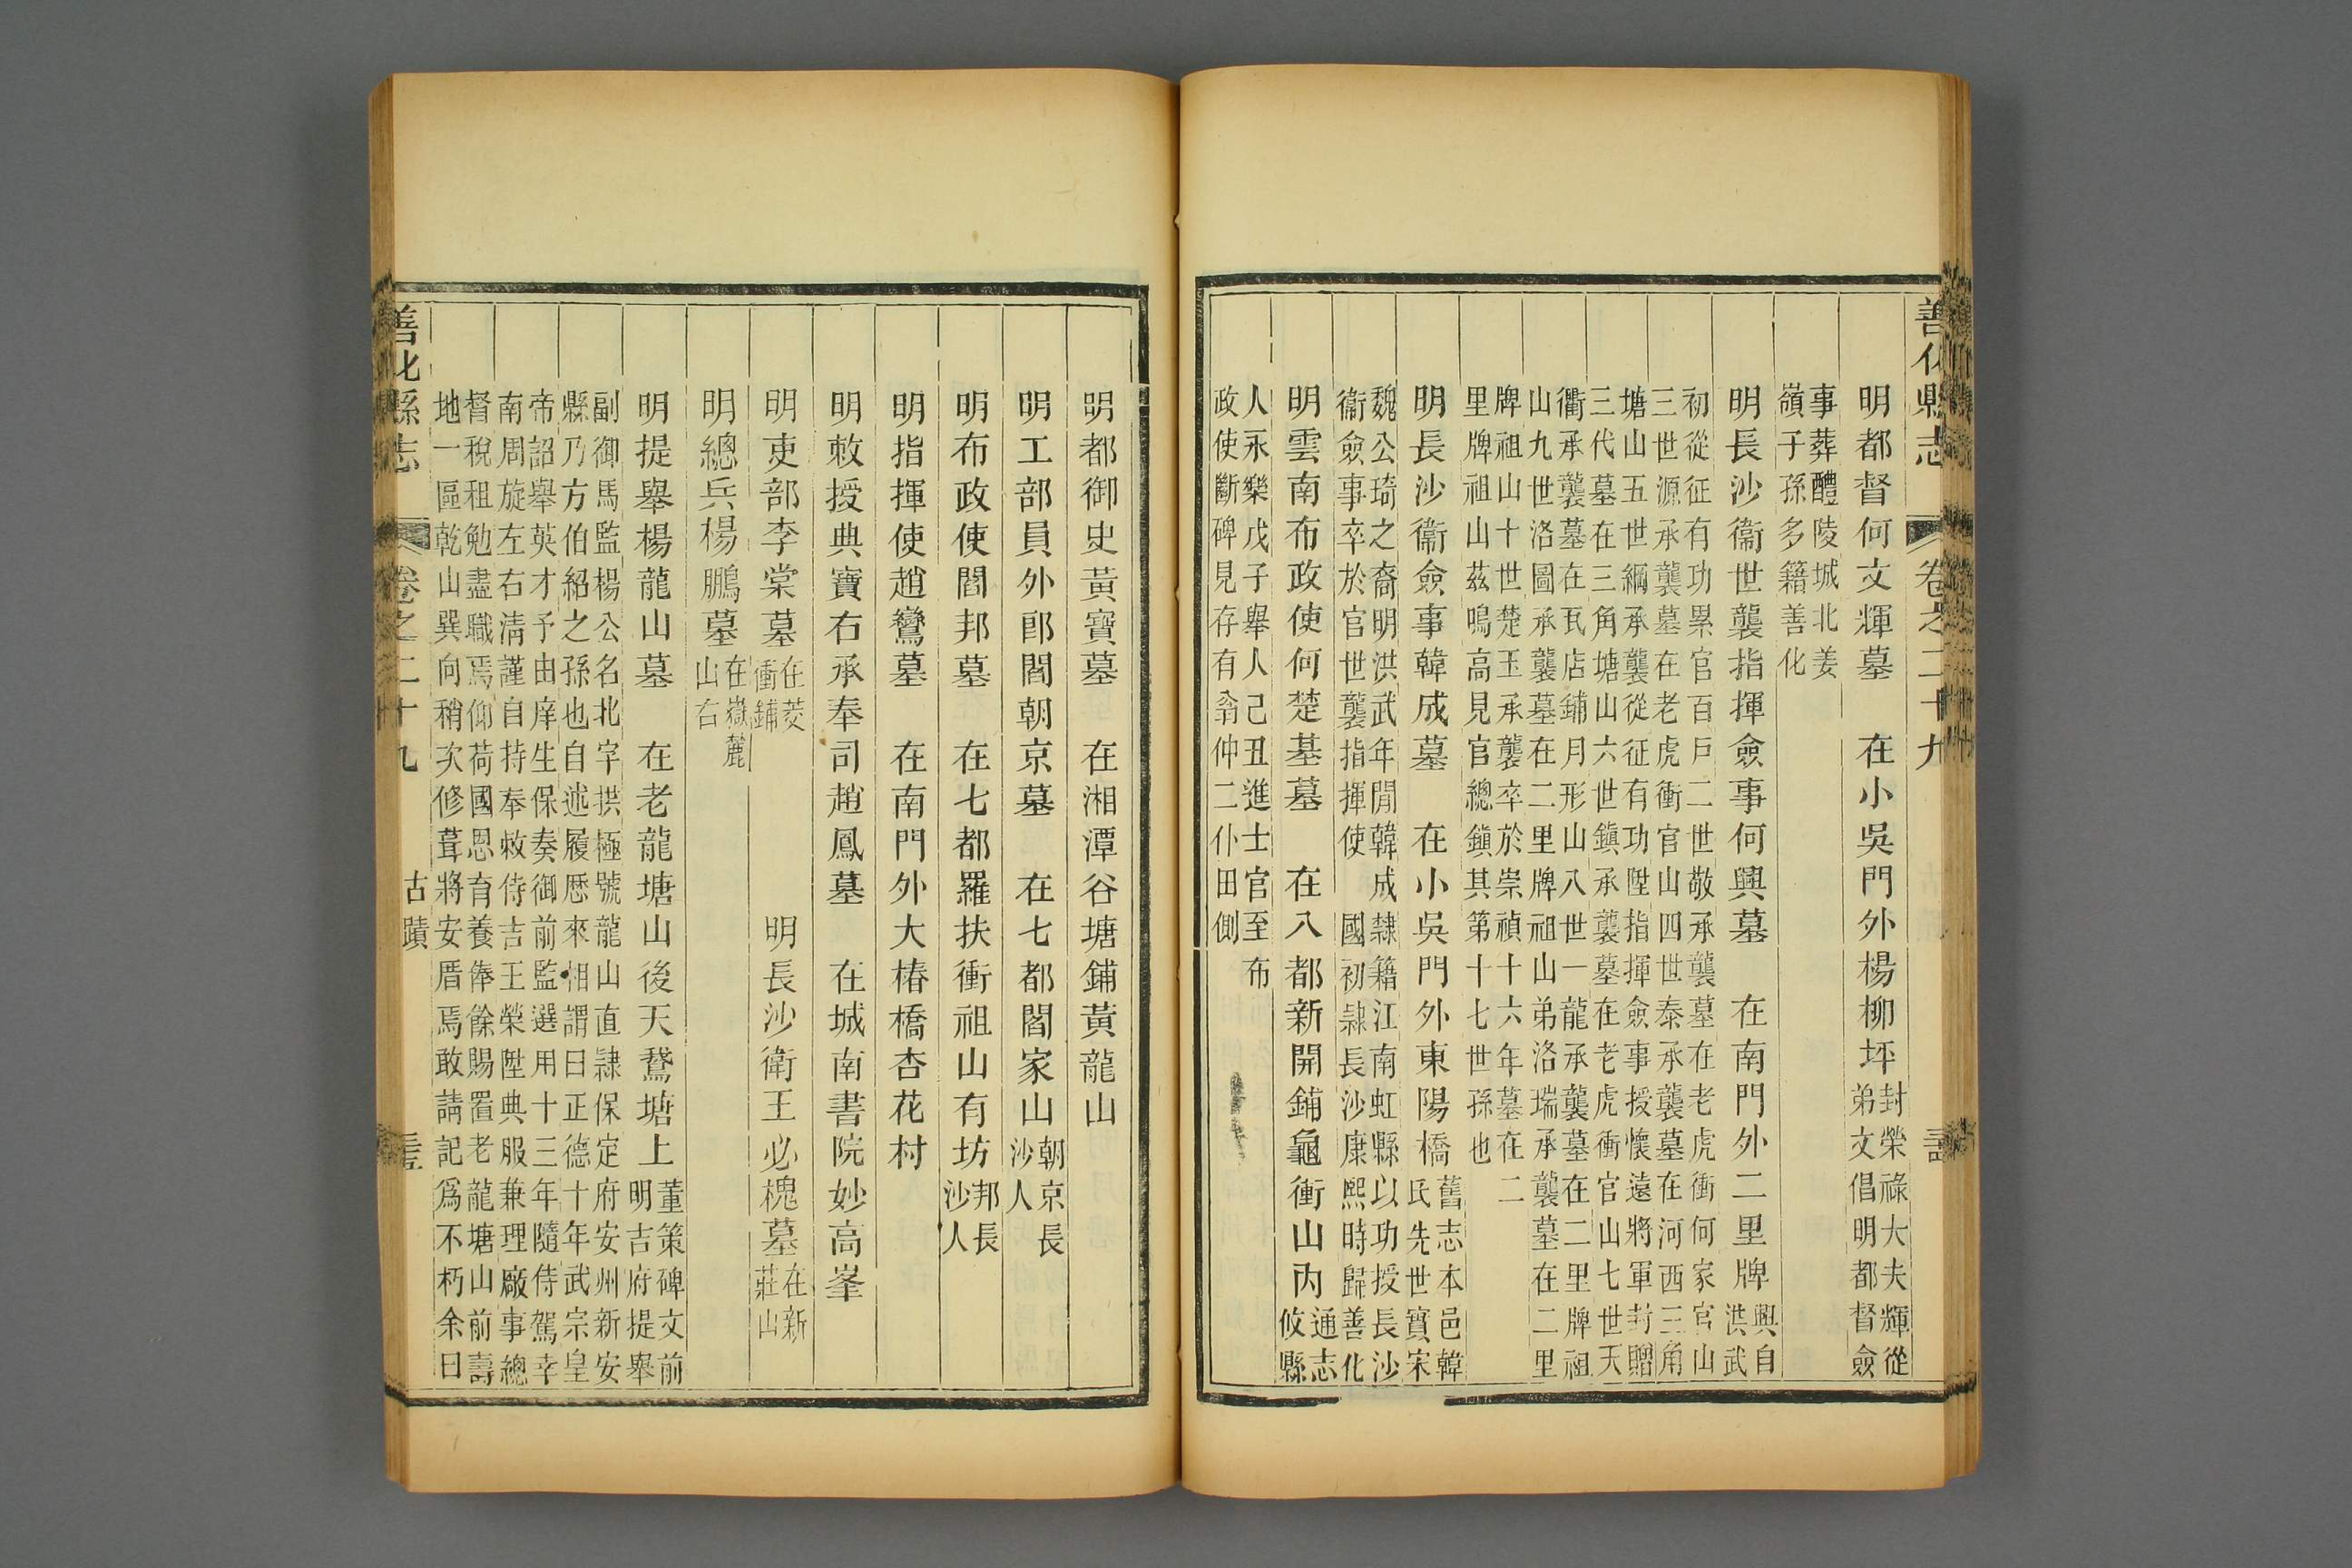 善化縣志 卷之二十九
明都督何文輝墓 在小吳門外楊柳坪
封榮祿大夫輝從
弟文倡明都督僉
事葬醴陵城北姜
嶺子孫多籍善化
明長沙衞世襲指揮僉事何興墓 在南門外二里牌
興自
洪武
初從征有功累官百戶二世敬承襲墓在老虎衝何家官山
三世源承襲墓在老虎衝官山四世泰承襲墓在河西三角
塘山五世綱承襲從征有功陞指揮僉事授懷遠將軍封贈
三代墓在三角塘山六世鎮承襲墓在老虎衝官山七世天
衢承襲墓在瓦店鋪月形山八世一龍承襲墓在二里牌祖
山九世洛圖承襲墓在二里牌祖山弟洛瑞承襲墓在二里
牌祖山十世楚玉承襲卒於崇禎十六年墓在二
里牌祖山茲鳴高見官總鎮其第十七世孫也
明長沙衞僉事韓成墓 在小吳門外東陽橋
舊志本邑韓
民先世寶宋
魏公琦之裔明洪武年閒韓成隸籍江南虹縣以功授長沙
衞僉事卒於官世襲指揮使 國初隷長沙康熙時歸善化
明雲南布政使何楚基墓 在八都新開鋪龜衝山內
通志
攸縣
人永樂戊子舉人己丑進士官至布
政使斷碑見存有翁仲二仆田側
明都御史黃寶墓 在湘潭谷塘鋪黃龍山
明工部員外郎閻朝京墓 在七都閻家山
朝京長
沙人
明布政使閻邦墓 在七都羅扶衝祖山有坊
邦長
沙人
明指揮使趙鸞墓 在南門外大椿橋杏花村
明敕授典寶右承奉司趙鳳墓 在城南書院妙高峯
明吏部李棠墓
在茭
衝鋪
明長沙衛王必槐墓
在新
莊山
明總兵楊鵬墓
在嶽麓
山右
明提舉楊龍山墓 在老龍塘山後天鵞塘上
董策碑文前
明吉府提舉
副御馬監楊公名北字拱極號龍山直隷保定府安州新安
縣乃方伯紹之孫也自述履歷來相謂曰正德十年武宗皇
帝詔舉英才予由庠生保奏御前監選用十三年隨侍駕幸
南周旋左右淸謹自持奉敕侍吉王榮陞典服兼理廠事總
督稅租勉盡職焉仰荷國恩育養俸餘賜置老龍塘山前壽
地一區乾山巽向稍次修葺將安厝焉敢請記爲不朽余曰
善化縣志 卷之二十九 古蹟